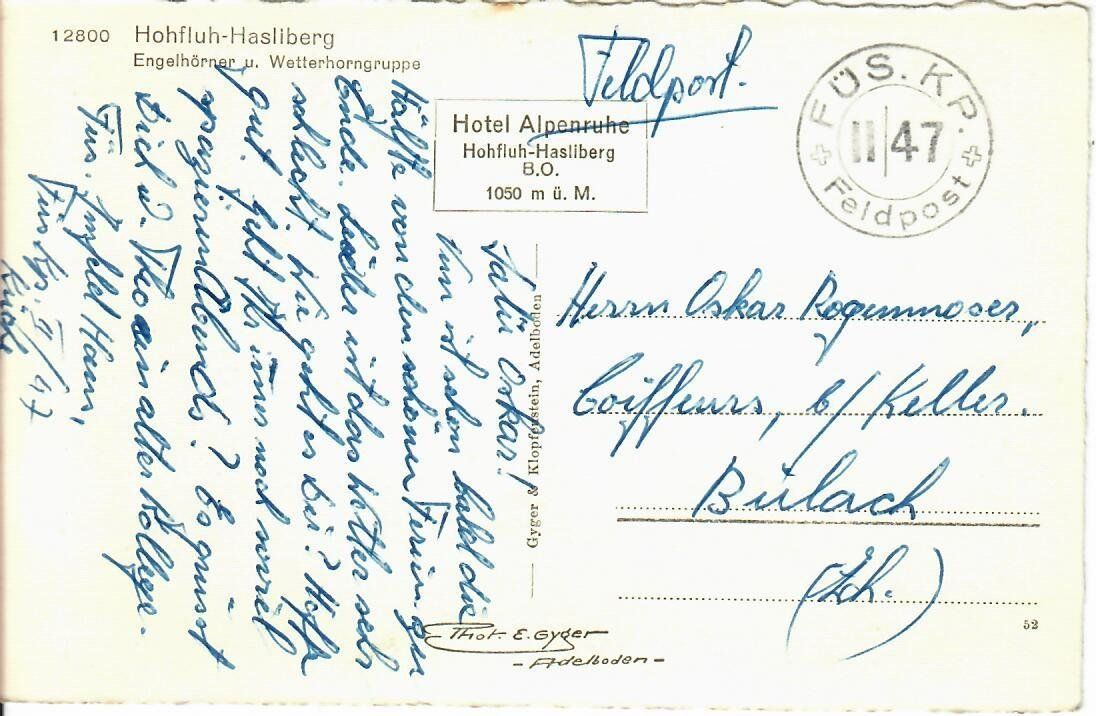 12800 Hohfluh-Hasliberg
Engelhörner u. Wetterhorngruppe
Feldpost.
Hotel Alpenruhe
Hohfluh-Hasliberg
B.O.
1050 m ü. M.
FÜS. KP.
II/47
Feldpost
Salü Oskar!
Nun ist schon bald die
Hälfte von den schönen Ferien zu
Ende. Leider ist das Wetter sehr
schlecht. Wie geht es Dir? Hoffe
gut. Geht Ihr immer noch soviel
spazieren Abends? Es grüsst
Dich u. Theo ein alter Kollege.
Füs. Imfeld Hans,
Füs Kp. II/47
Küche
Gyger & Klopfenstein, Adelboden
Herrn Oskar Rogenmoser,
Coiffeurs, b/ Keller.
Bülach
(Zch.)
Phot. E. Gyger
- Adelboden -
52